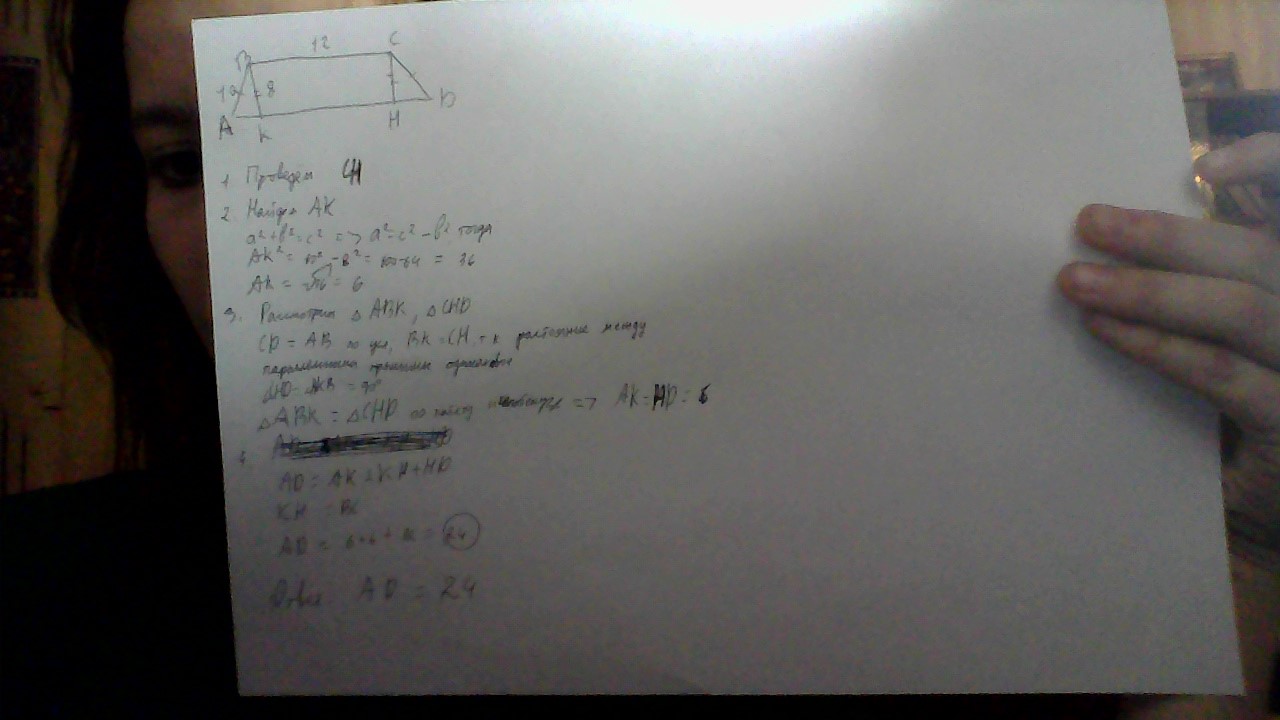 12
B
C
10
8
A
K
H
D
1 Проведём CH
2 Найдём AK
a²+b²=c² => a²=c²-b² тогда
AK² = 10² - 8² = 100-64 = 36
AK = √36 = 6
3. Рассмотрим △ABK, △CHD
CD = AB по усл, BK=CH т к расстояние между
параллельными прямыми одинаковое
△ABK = △CHD по катету => AK=HD=6
4.
AD = AK+KH+HD
KH = BC
AD = 6+6+12 = 24
Ответ AD = 24